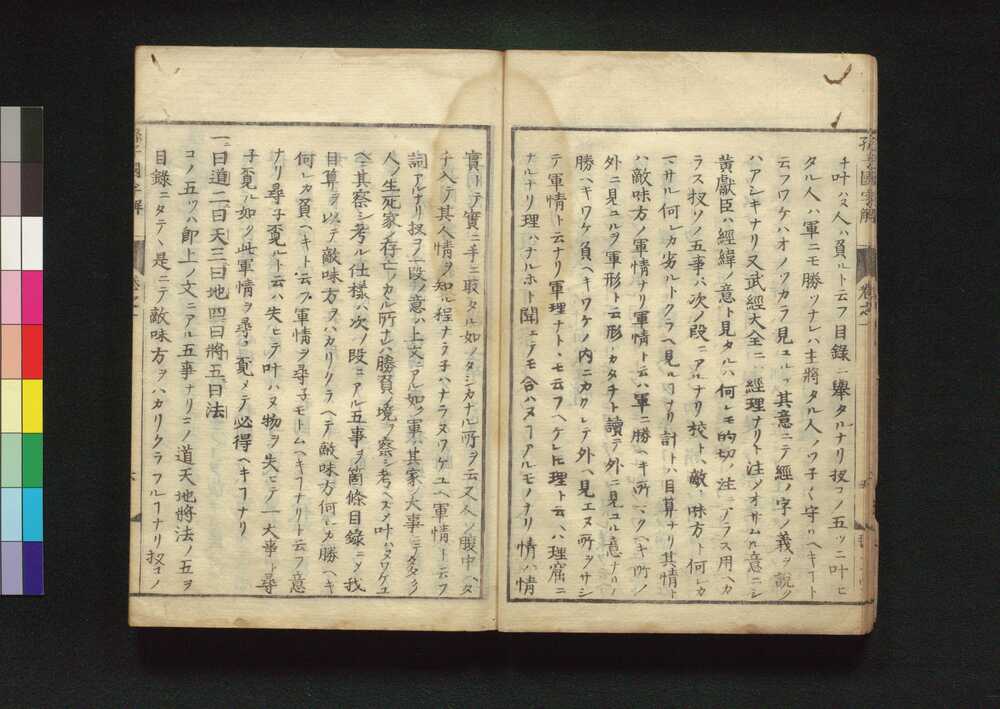 チ叶ハヌ人ハ負ルト云フ目錄ニ舉タルナリ扨コノ五ツニ叶ヒ
タル人ハ軍ニモ勝ツナレハ主將タル人ノワチく守ルヘキヿト
云フワケハオノツカラ見ユル其意ニテ經ノ字ノ義ヲ說ク
ハアシキナリ又武經大全ニ經理ナリト注シオサムル意ニシ
黄獻臣ハ經緯ノ意ト見タルハ何レモ的切ノ注ニアラス用ヘカ
ラス扨ソノ五事ハ次ノ段ニアルナリ校トハ敵ト味方ト何レカ
マサル何レカ劣ルトクラヘ見ルヿナリ計トハ目算ナリ其情ト
ハ敵味方ノ軍情ナリ軍情ト云ハ軍ニ勝ヘキ所マクヘキ所ノ
外ニ見ユルヲ軍形ト云形ハカタチト讀テ外ニ見ユル意ナリ
勝ヘキワケ負ヘキワケノ内ニカクレテ外ヘ見エヌ所ヲサシ
テ軍情ト云ナリ軍理ナトヽモ云フヘケレトモ理ト云ハ理窟ニ
ナルナリ理ハナルホト聞エテモ合ハヌヿアルモノナリ情ハ情
實トテ實ニ手ニ取タル如クタシカナル所ヲ云又人ノ腹中ヘタ
チ入テ其人情ヲ知ル程ナラ子ハナラヌワケユヘ軍情ト云フ
詞アルナリ扨ヲノ一段ノ意ハ上文ニアル如ク軍ハ其家ノ大事ニテタク
人ノ生死家ノ存亡ノカル所ナレハ勝負ノ境ヲ察シ考ヘスメ叶ハヌワケユ
ヘニ其察シ考ル仕樣ハ次ノ段ニアル五事ヲ箇條目録ニメ我
目算ヲ以テ敵味方ヲハカリクラヘテ敵味方何レカ勝ヘキ
何レカ負ヘキト云フ軍情ヲ尋子モトムヘキヿナリト云フ意
ナリ尋子覔ルト云ハ失ヒテ叶ハヌ物ヲ失ヒテ一大事ト尋
子覔ル如ク此軍情ヲ尋子覔メテ必得ヘキヿナリ
一曰道二曰天三曰地四曰將五曰法
コノ五ツハ卽上ノ文ニアル五事ナリコノ道天地將法ノ五ヲ
目錄ニタテヽ是ニテ敵味方ヲハカリクラフルヿナリ扨コノ